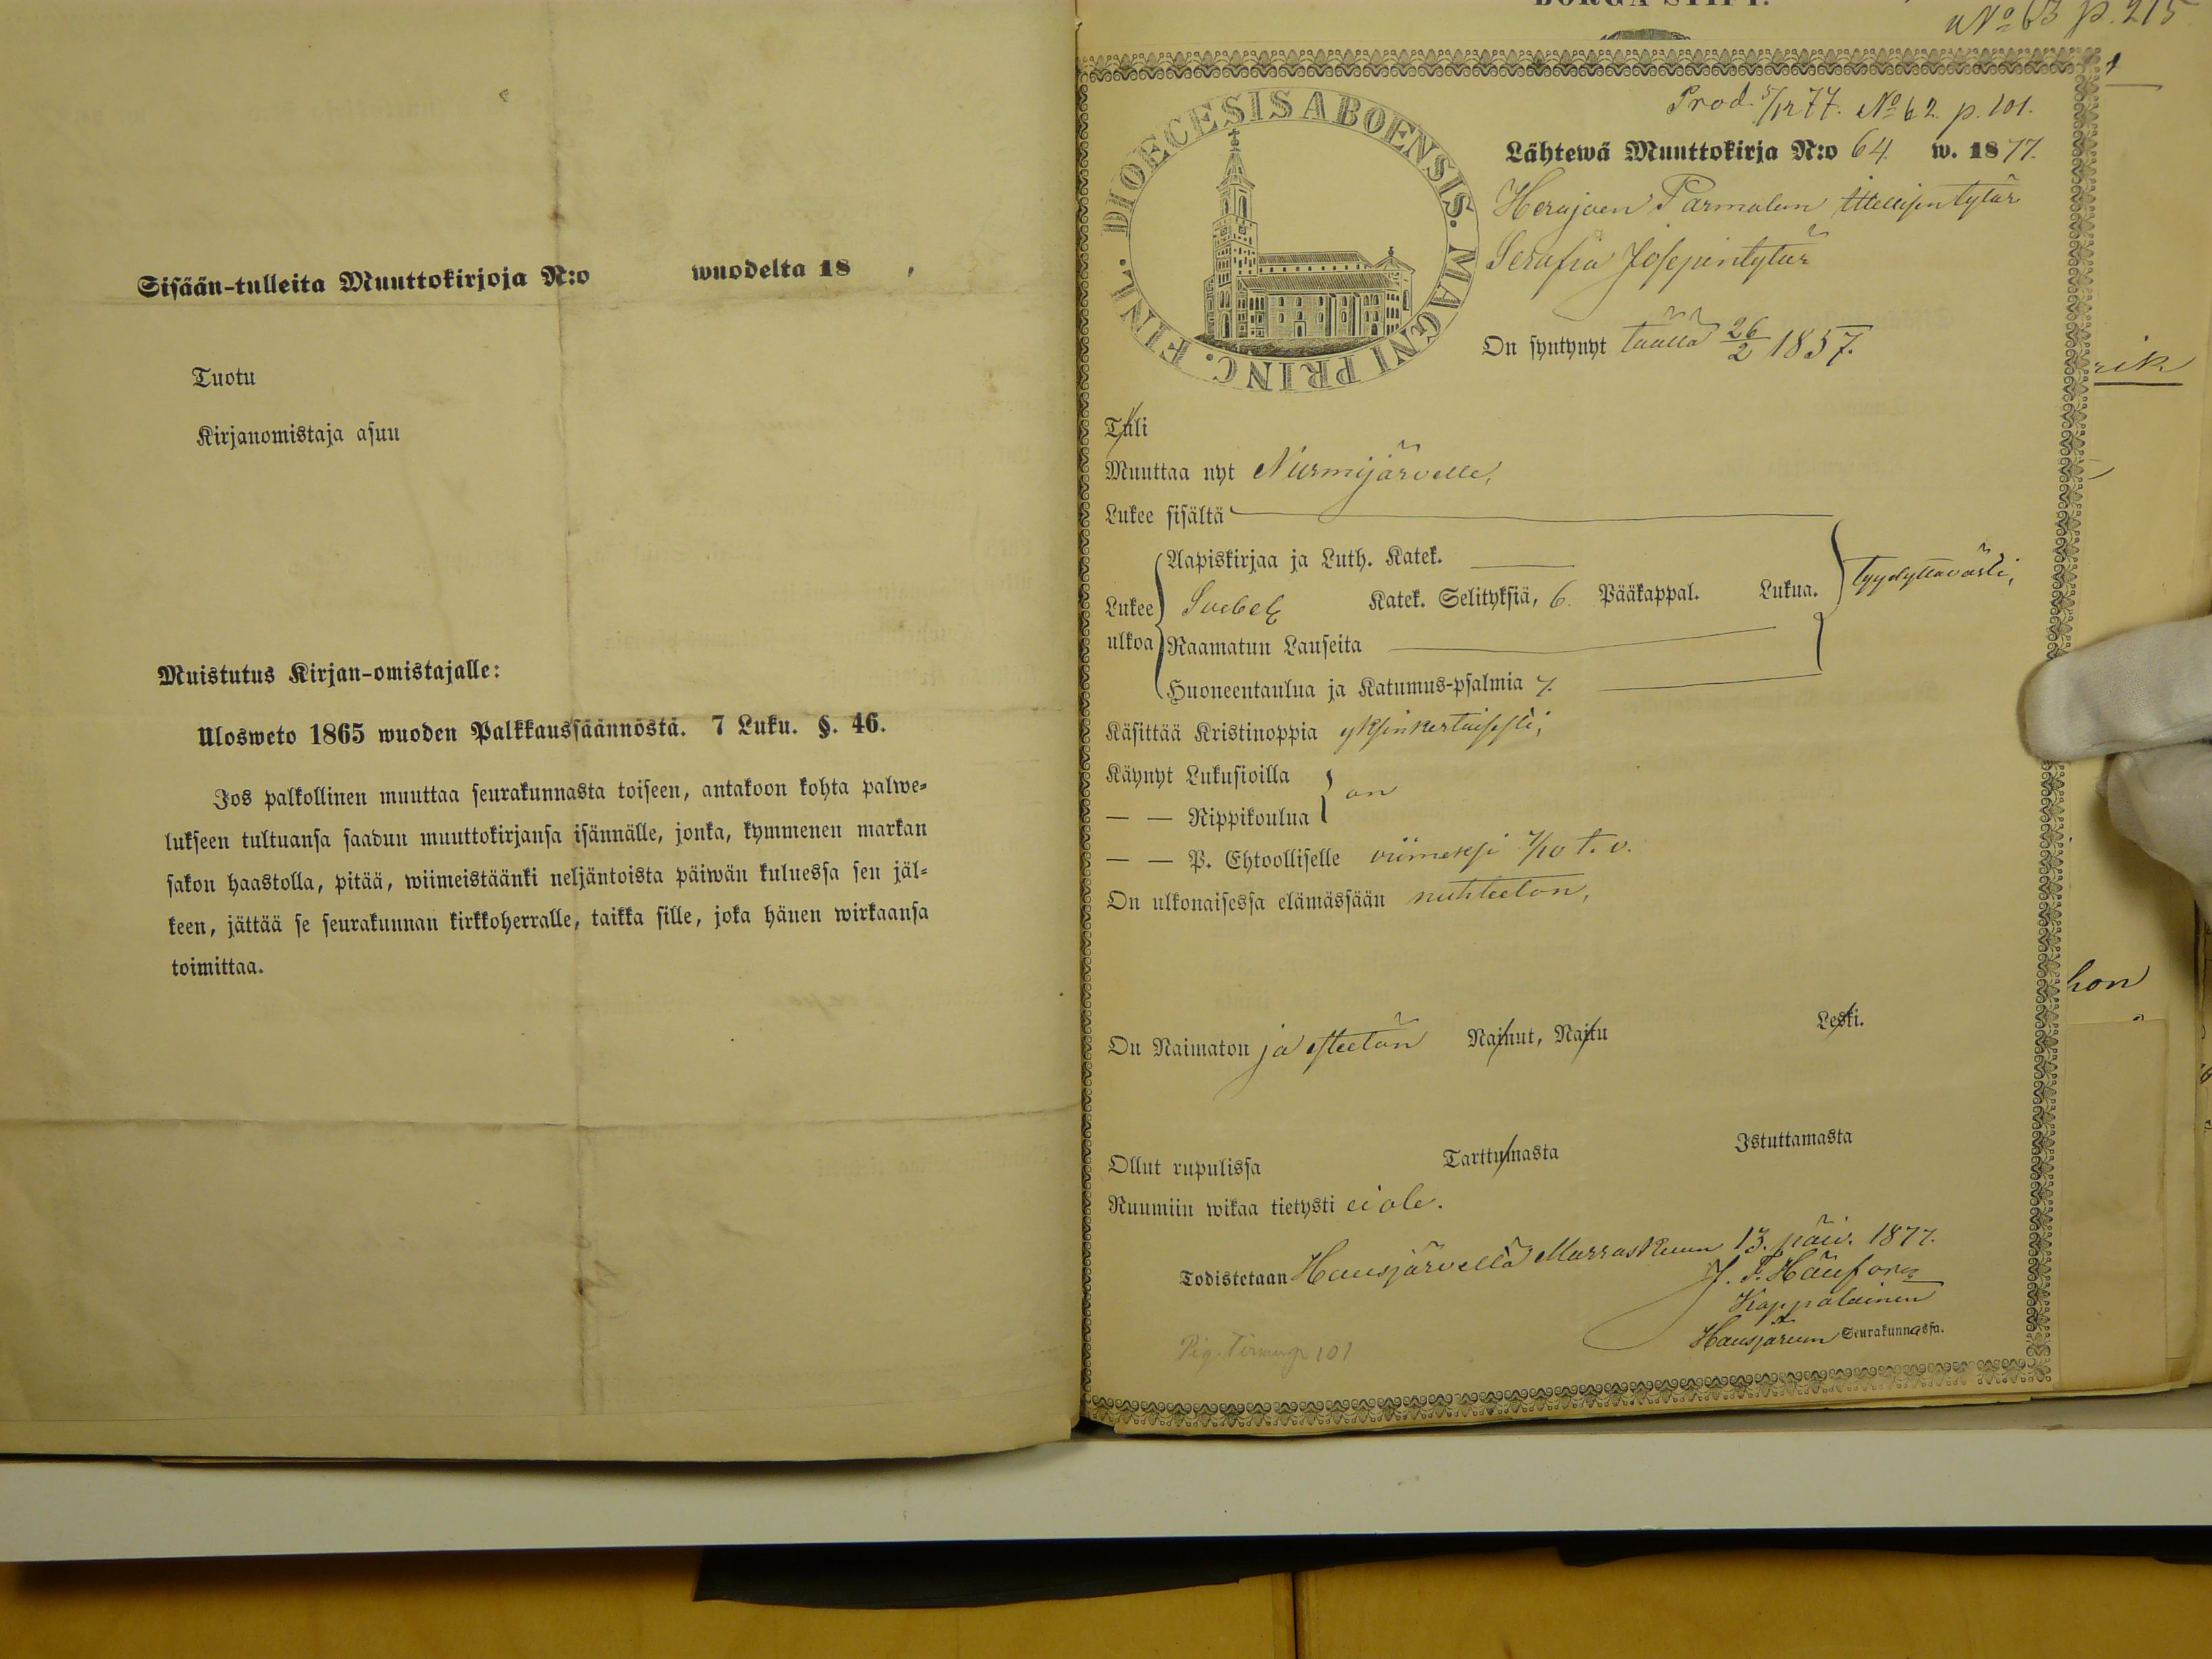 Sisään-tulleita Muuttokirjoja N:o wuodelta 18 .
Tuotu
Kirjanomistaja asuu
Muistutus Kirjan-omistajalle:
Ulosweto 1865 wuoden Palkkaussäännöstä. 7 Luku. §. 46.
Jos palkollinen muuttaa seurakunnasta toiseen, antakoon kohta palwe-
lukseen tultuansa saadun muuttokirjansa isännälle, jonka, kymmenen markan
sakon haastolla, pitää, wiimeistäänki neljäntoista päiwän kuluessa sen jäl-
keen, jättää se seurakunnan kirkkoherralle, taikka sille, joka hänen wirkaansa
toimittaa.
BORGÅ STIFT.
No 63 p. 215
DIOECESIS ABOENSIS. MAGNI PRINC. FINL.
Prod. 5/12 77. No 62 p. 101.
Lähtewä Muuttokirja N:o 64. w. 1877.
Herajoen Parmalan Itellisentytär
Serafia Josepintytär
On syntynyt täällä 26/2 1857.
Tuli
Muuttaa nyt Nurmijärvelle,
Lukee sisältä
Aapiskirjaa ja Luth. Katek.
Lukee ulkoa Katek. Selityksiä, 6. Pääkappal. Lukua. tyydyttävästi,
Raamatun Lauseita
Huoneentaulua ja Katumus-psalmia 7.
Käsittää Kristinoppia yksinkertaisesti,
Käynyt Lukusioilla
— — Rippikoulua on
— — P. Ehtoolliselle viimeksi 7/10 t. v.
On ulkonaisessa elämässään nuhteeton,
On Naimaton ja esteetön Nainut, Naitu Leski.
Ollut rupulissa Tarttumasta Istuttamasta
Ruumiin wikaa tietysti ei ole.
Todistetaan Hausjärvellä Marraskuun 13. päiv. 1877.
J. F.
Kappalainen
Hausjärven Seurakunnassa.
101
rik
hon